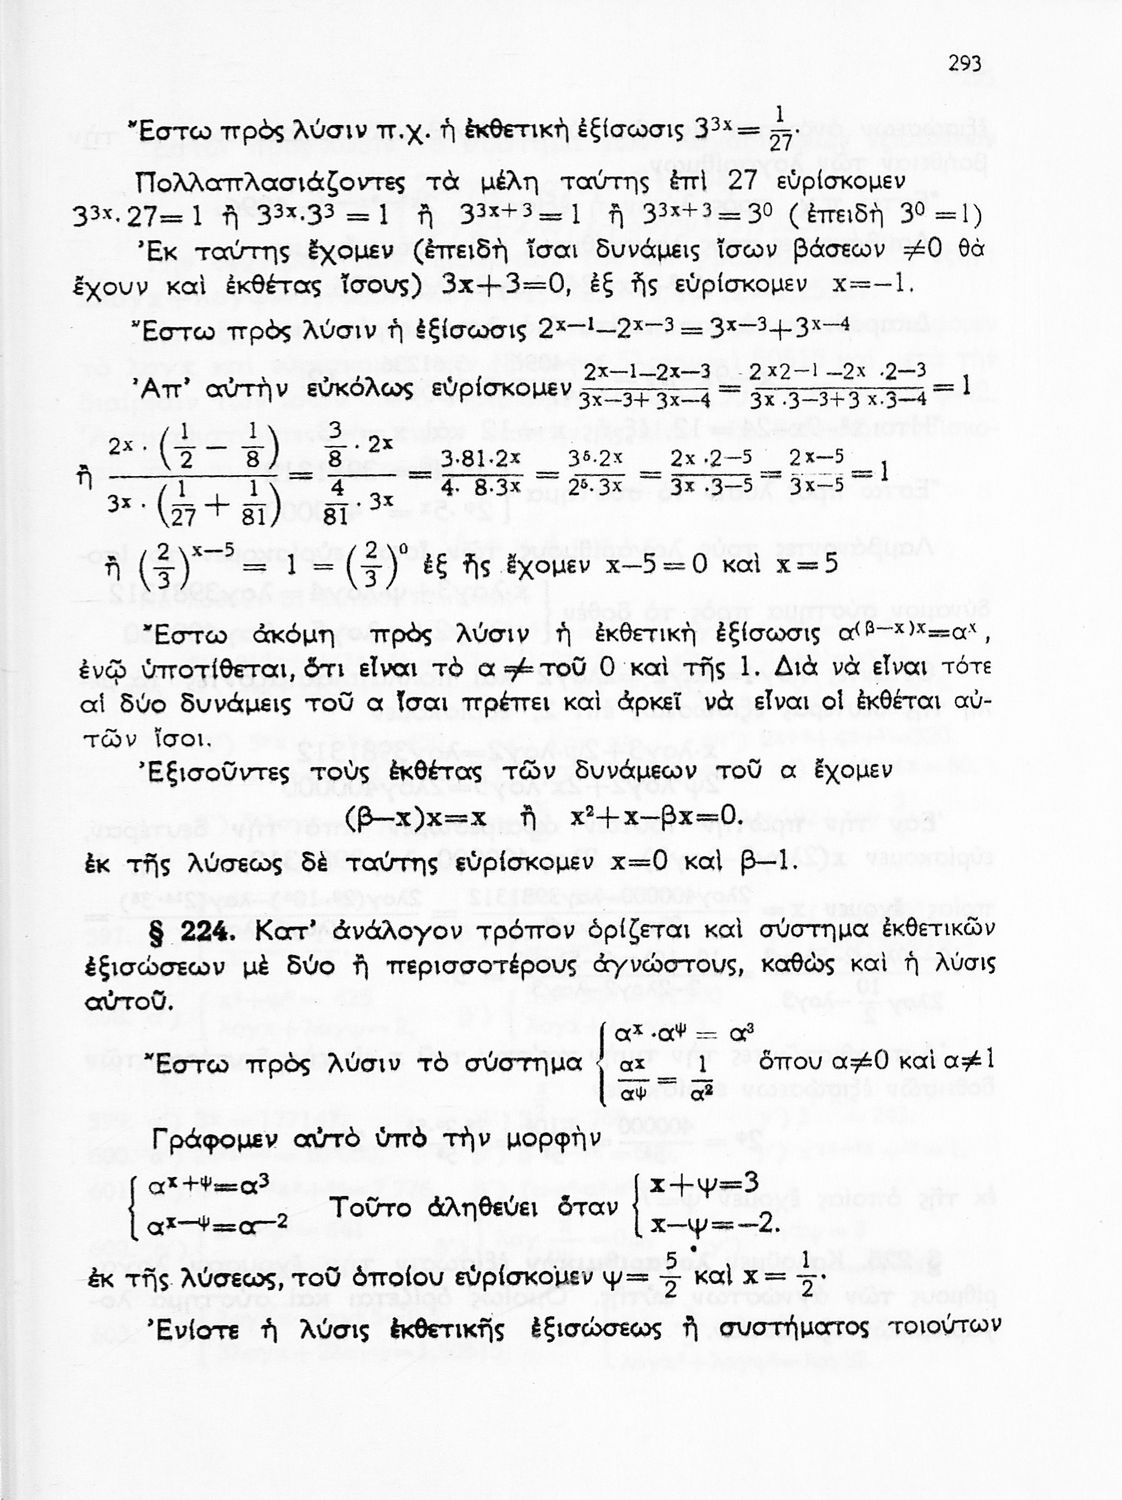 293
Ἔστω πρὸς λύσιν π.χ. ἡ ἐκθετικὴ ἐξίσωσις 3³ˣ = 1/27.
Πολλαπλασιάζοντες τὰ μέλη ταύτης ἐπὶ 27 εὑρίσκομεν
3³ˣ·27=1 ἢ 3³ˣ·3³ = 1 ἢ 3³ˣ⁺³=1 ἢ 3³ˣ⁺³=3⁰ (ἐπειδὴ 3⁰ =1)
Ἐκ ταύτης ἔχομεν (ἐπειδὴ ἴσαι δυνάμεις ἴσων βάσεων ≠0 θὰ
ἔχουν καὶ ἐκθέτας ἴσους) 3x+3=0, ἐξ ἧς εὑρίσκομεν x=—1.
Ἔστω πρὸς λύσιν ἡ ἐξίσωσις 2ˣ⁻¹—2ˣ⁻³ = 3ˣ⁻³+3ˣ⁻⁴
Ἀπ' αὐτὴν εὐκόλως εὑρίσκομεν (2x—1—2x—3)/(3x—3+3x—4) = (2x2—1—2x·2—3)/(3x·3—3+3x·3—4) = 1
ἢ (2x·(1/2 — 1/8))/(3x·(1/27 + 1/81)) = (3/8·2x)/(4/81·3x) = (3·81·2x)/(4·8·3x) = (3⁵·2x)/(2⁵·3x) = (2x·2—5)/(3x·3—5) = (2x—5)/(3x—5) = 1
ἢ (2/3)ˣ⁻⁵ = 1 = (2/3)⁰ ἐξ ἧς ἔχομεν x—5=0 καὶ x=5
Ἔστω ἀκόμη πρὸς λύσιν ἡ ἐκθετικὴ ἐξίσωσις α^(β—x)x=αˣ,
ἐνῷ ὑποτίθεται, ὅτι εἶναι τὸ α ≠ τοῦ 0 καὶ τῆς 1. Διὰ νὰ εἶναι τότε
αἱ δύο δυνάμεις τοῦ α ἴσαι πρέπει καὶ ἀρκεῖ νὰ εἶναι οἱ ἐκθέται αὐ-
τῶν ἴσοι.
Ἐξισοῦντες τοὺς ἐκθέτας τῶν δυνάμεων τοῦ α ἔχομεν
(β—x)x=x ἢ x²+x—βx=0.
ἐκ τῆς λύσεως δὲ ταύτης εὑρίσκομεν x=0 καὶ β—1.
§ 224. Κατ' ἀνάλογον τρόπον ὁρίζεται καὶ σύστημα ἐκθετικῶν
ἐξισώσεων μὲ δύο ἢ περισσοτέρους ἀγνώστους, καθὼς καὶ ἡ λύσις
αὐτοῦ.
Ἔστω πρὸς λύσιν τὸ σύστημα { αˣ·α^ψ = α³ , αx/αψ = 1/α² ὅπου α≠0 καὶ α≠1
Γράφομεν αὐτὸ ὑπὸ τὴν μορφὴν
{ α^x+ψ=α³ , α^x—ψ=α—2 Τοῦτο ἀληθεύει ὅταν { x+ψ=3 , x—ψ=—2.
ἐκ τῆς λύσεως, τοῦ ὁποίου εὑρίσκομεν ψ= 5/2 καὶ x = 1/2.
Ἐνίοτε ἡ λύσις ἐκθετικῆς ἐξισώσεως ἢ συστήματος τοιούτων